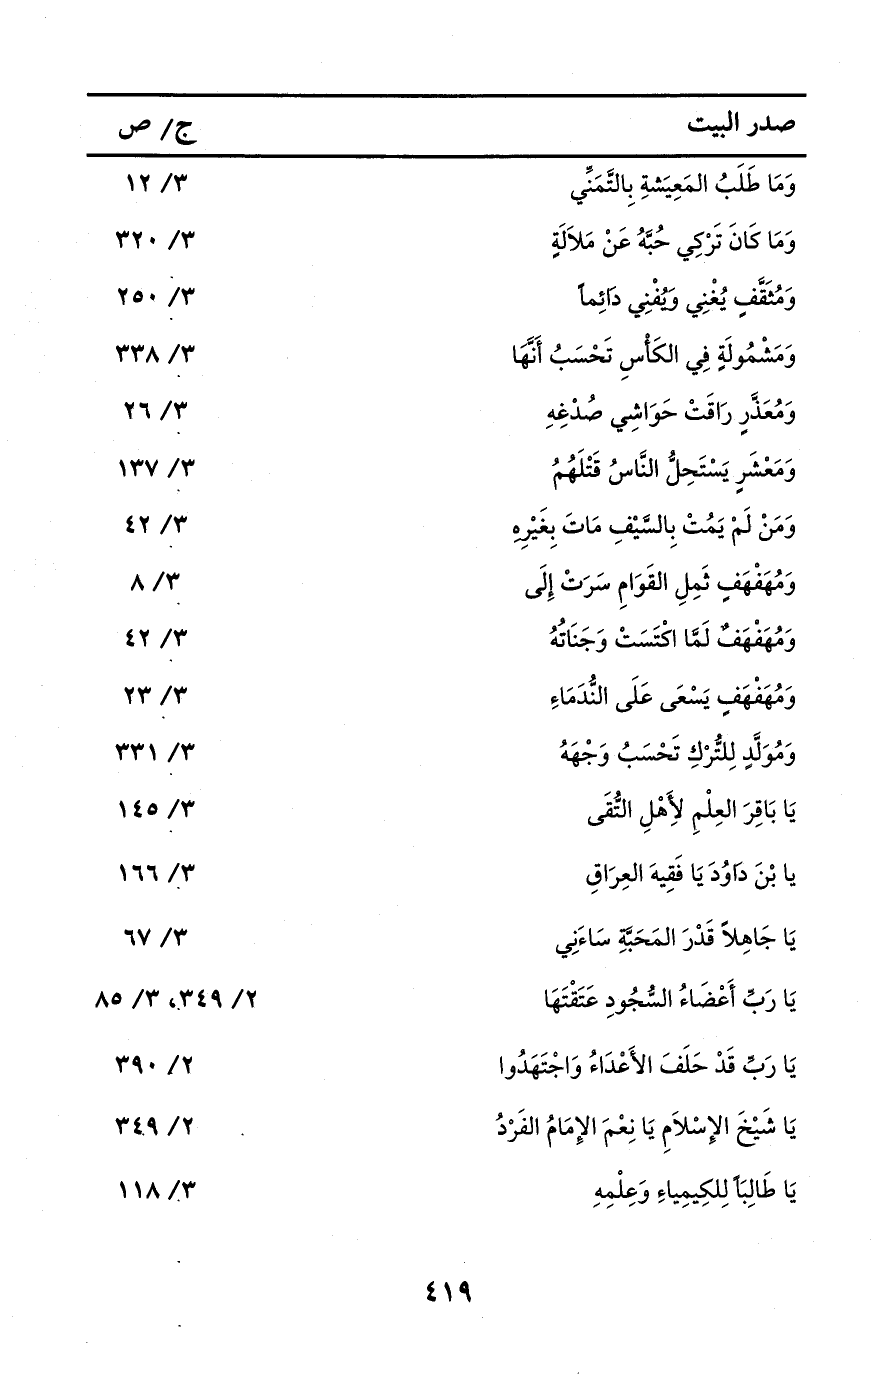 صدر البيت ج/ ص
وَمَا طَلَبُ المَعِيَشةِ بِالتَّمَنِّي ٣/ ١٢
وَمَا كَانَ تَرْكِي حُبَّهُ عَنْ مَلاَلَةٍ ٣/ ٣٢٠
وَمُثَقَّفٍ يُغْنِي وَيُفْنِي دَائِماً ٣/ ٢٥٠
وَمَشْمُولَةٍ فِي الكَأْسِ تَحْسَبُ أَنَّهَا ٣/ ٣٣٨
وَمُعَذَّرٍ رَاقَتْ حَوَاشِي صُدْغِهِ ٣/ ٢٦
وَمَعْشَرٍ يَسْتَحِلُّ النَّاسُ قَتْلَهُمُ ٣/ ١٣٧
وَمَنْ لَمْ يَمُتْ بِالسَّيْفِ مَاتَ بِغَيْرِهِ ٣/ ٤٢
وَمُهَفْهَفٍ ثَمِلِ القَوَامِ سَرَتْ إِلَى ٣/ ٨
وَمُهَفْهَفٌ لَمَّا اكْتَسَتْ وَجَنَاتُهُ ٣/ ٤٢
وَمُهَفْهَفٍ يَسْعَى عَلَى النُّدَمَاءِ ٣/ ٢٣
وَمُوَلَّدٍ لِلتُّرْكِ تَحْسَبُ وَجْهَهُ ٣/ ٣٣١
يَا بَاقِرَ العِلْمِ لأَِهْلِ التُّقَى ٣/ ١٤٥
يا بْنَ دَاوُدَ يَا فَقِيهَ العِرَاقِ ٣/ ١٦٦
يَا جَاهِلاً قَدْرَ المَحَبَّةِ سَاءَنِي ٣/ ٦٧
يَا رَبِّ أَعْضَاءُ السُّجُودِ عَتَقْتَهَا ٢/ ٣٤٩، ٣/ ٨٥
يَا رَبِّ قَدْ حَلَفَ الأَعْدَاءُ وَاجْتَهَدُوا ٢/ ٣٩٠
يَا شَيْخَ الإِسْلاَمِ يَا نِعْمَ الإِمَامُ الفَرْدُ ٢/ ٣٤٩
يَا طَالِبَاً لِلكِيمِياءِ وَعِلْمِهِ ٣/ ١١٨
٤١٩